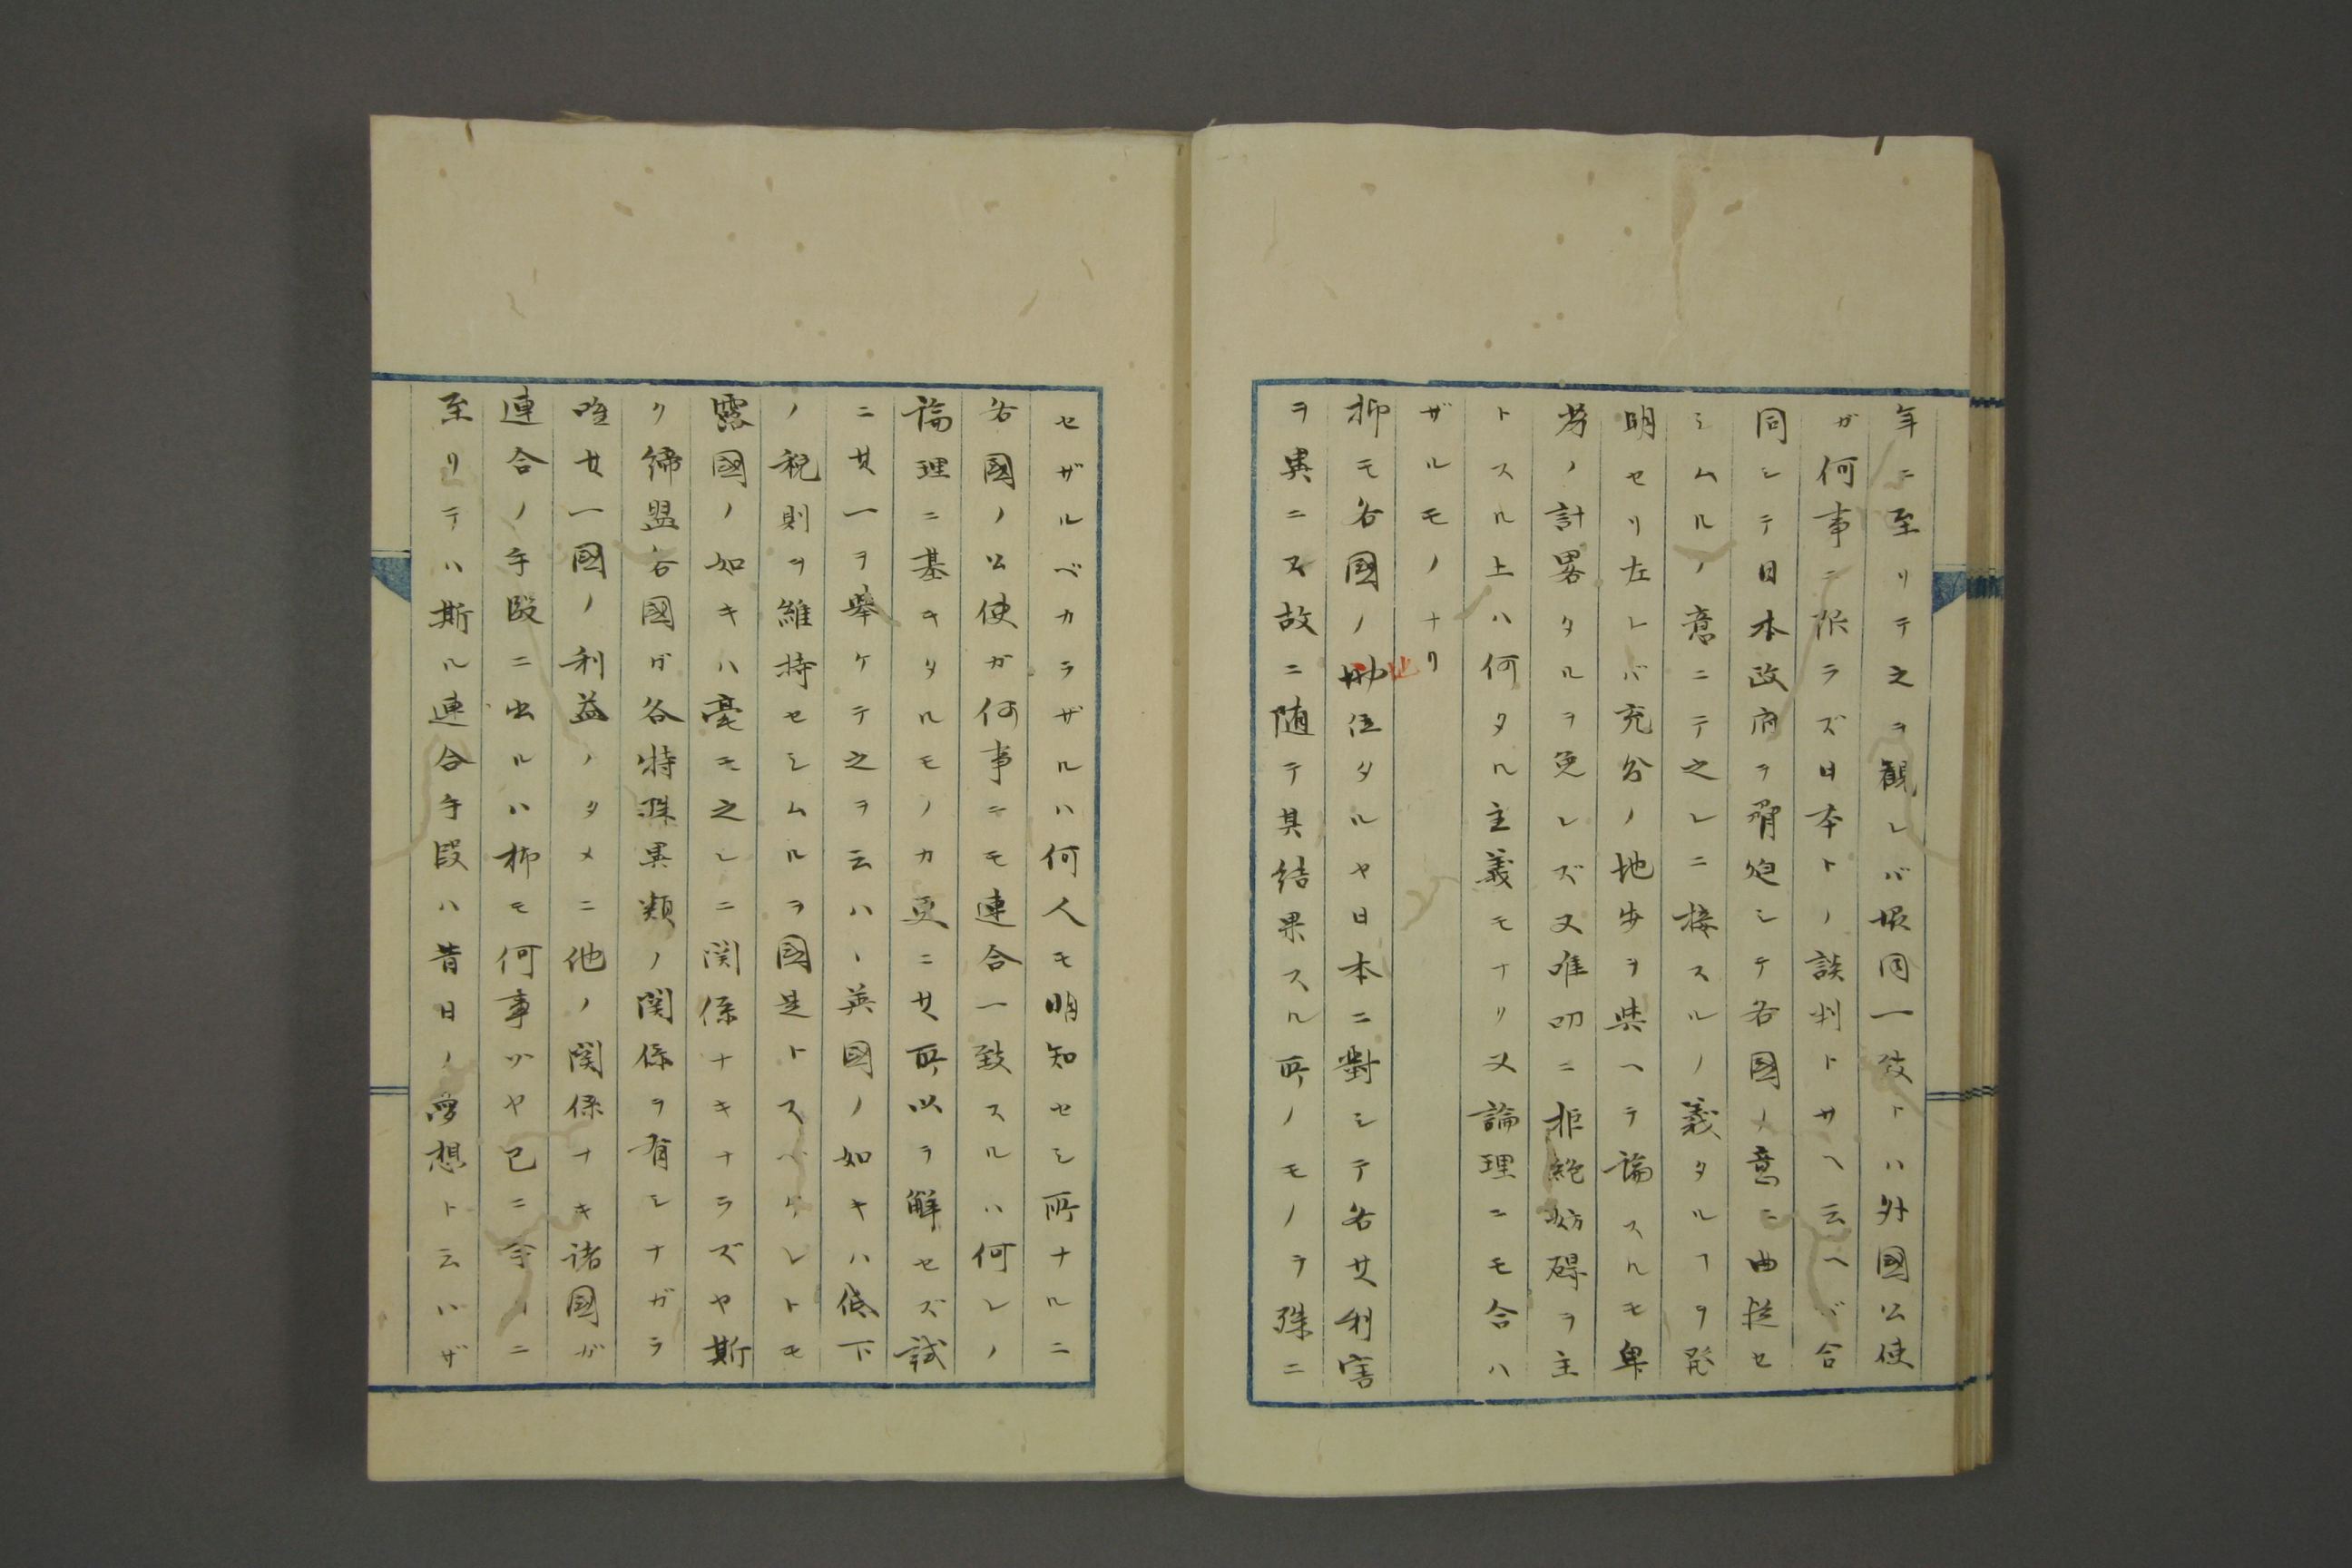 年ニ至リテ之ヲ観レバ堀同一致トハ外國公使
ガ何事ニ限ラズ日本トノ談判トサヘ云ヘバ合
同シテ日本政府ヲ脅迫シテ各國ノ意ニ曲従セ
シムルノ意ニテ之レニ接スルノ義タルヿヲ発
明セリ左レバ充分ノ地歩ヲ與ヘテ論スルモ卑
劣ノ計畧タルヲ免レズ又唯切ニ拒絶妨碍ヲ主
トスル上ハ何タル主義モナリ又論理ニモ合ハ
ザルモノナリ
抑モ各國ノ地位タルヤ日本ニ對シテ各其利害
ヲ異ニス故ニ随テ其結果スル所ノモノヲ殊ニ
セザルベカラザルハ何人モ明知セシ所ナルニ
各國ノ公使ガ何事ニモ連合一致スルハ何レノ
論理ニ基キタルモノカ更ニ其所以ヲ解セズ試
ニ其一ヲ舉ケテ之ヲ云ハヽ英國ノ如キハ低下
ノ税則ヲ維持セシムルヲ國是トスベケレトモ
露國ノ如キハ毫モ之レニ関係ナキナラズヤ斯
ク締盟各國ガ各特殊異類ノ関係ヲ有シナガラ
唯其一國ノ利益ノタメニ他ノ関係ナキ諸國ガ
連合ノ手段ニ出ルハ抑モ何事ゾヤ已ニ今日ニ
至リテハ斯ル連合手段ハ昔日ノ夢想ト云ハザ